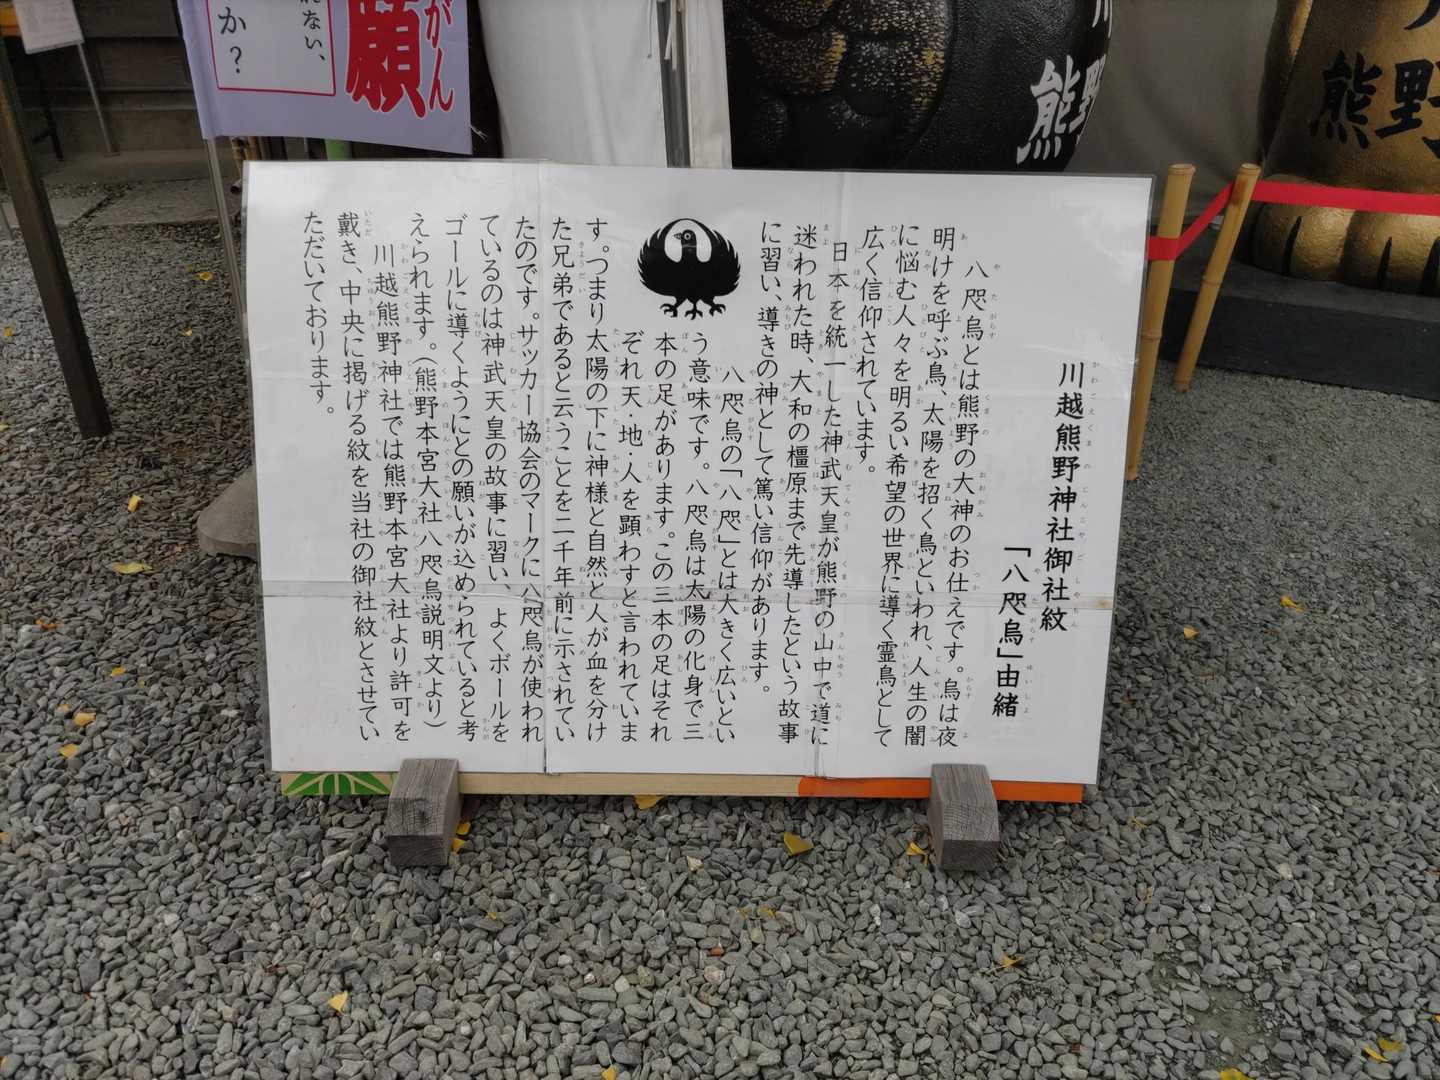 川越熊野神社御社紋
「八咫烏」由緒
八咫烏とは熊野の大神のお仕えです。烏は夜
明けを呼ぶ鳥、太陽を招く鳥といわれ、人生の闇
に悩む人々を明るい希望の世界に導く霊鳥として
広く信仰されています。
日本を統一した神武天皇が熊野の山中で道に
迷われた時、大和の橿原まで先導したという故事
に習い、導きの神として篤い信仰があります。
八咫烏の「八咫」とは大きく広いとい
う意味です。八咫烏は太陽の化身で三
本の足があります。この三本の足はそれ
ぞれ天・地・人を顕わすと言われていま
す。つまり太陽の下に神様と自然と人が血を分け
た兄弟であると云うことを二千年前に示されてい
たのです。サッカー協会のマークに八咫烏が使われ
ているのは神武天皇の故事に習い、よくボールを
ゴールに導くようにとの願いが込められていると考
えられます。（熊野本宮大社八咫烏説明文より）
川越熊野神社では熊野本宮大社より許可を
戴き、中央に掲げる紋を当社の御社紋とさせてい
ただいております。
がん
願
れない、
か？
川
熊野
熊野